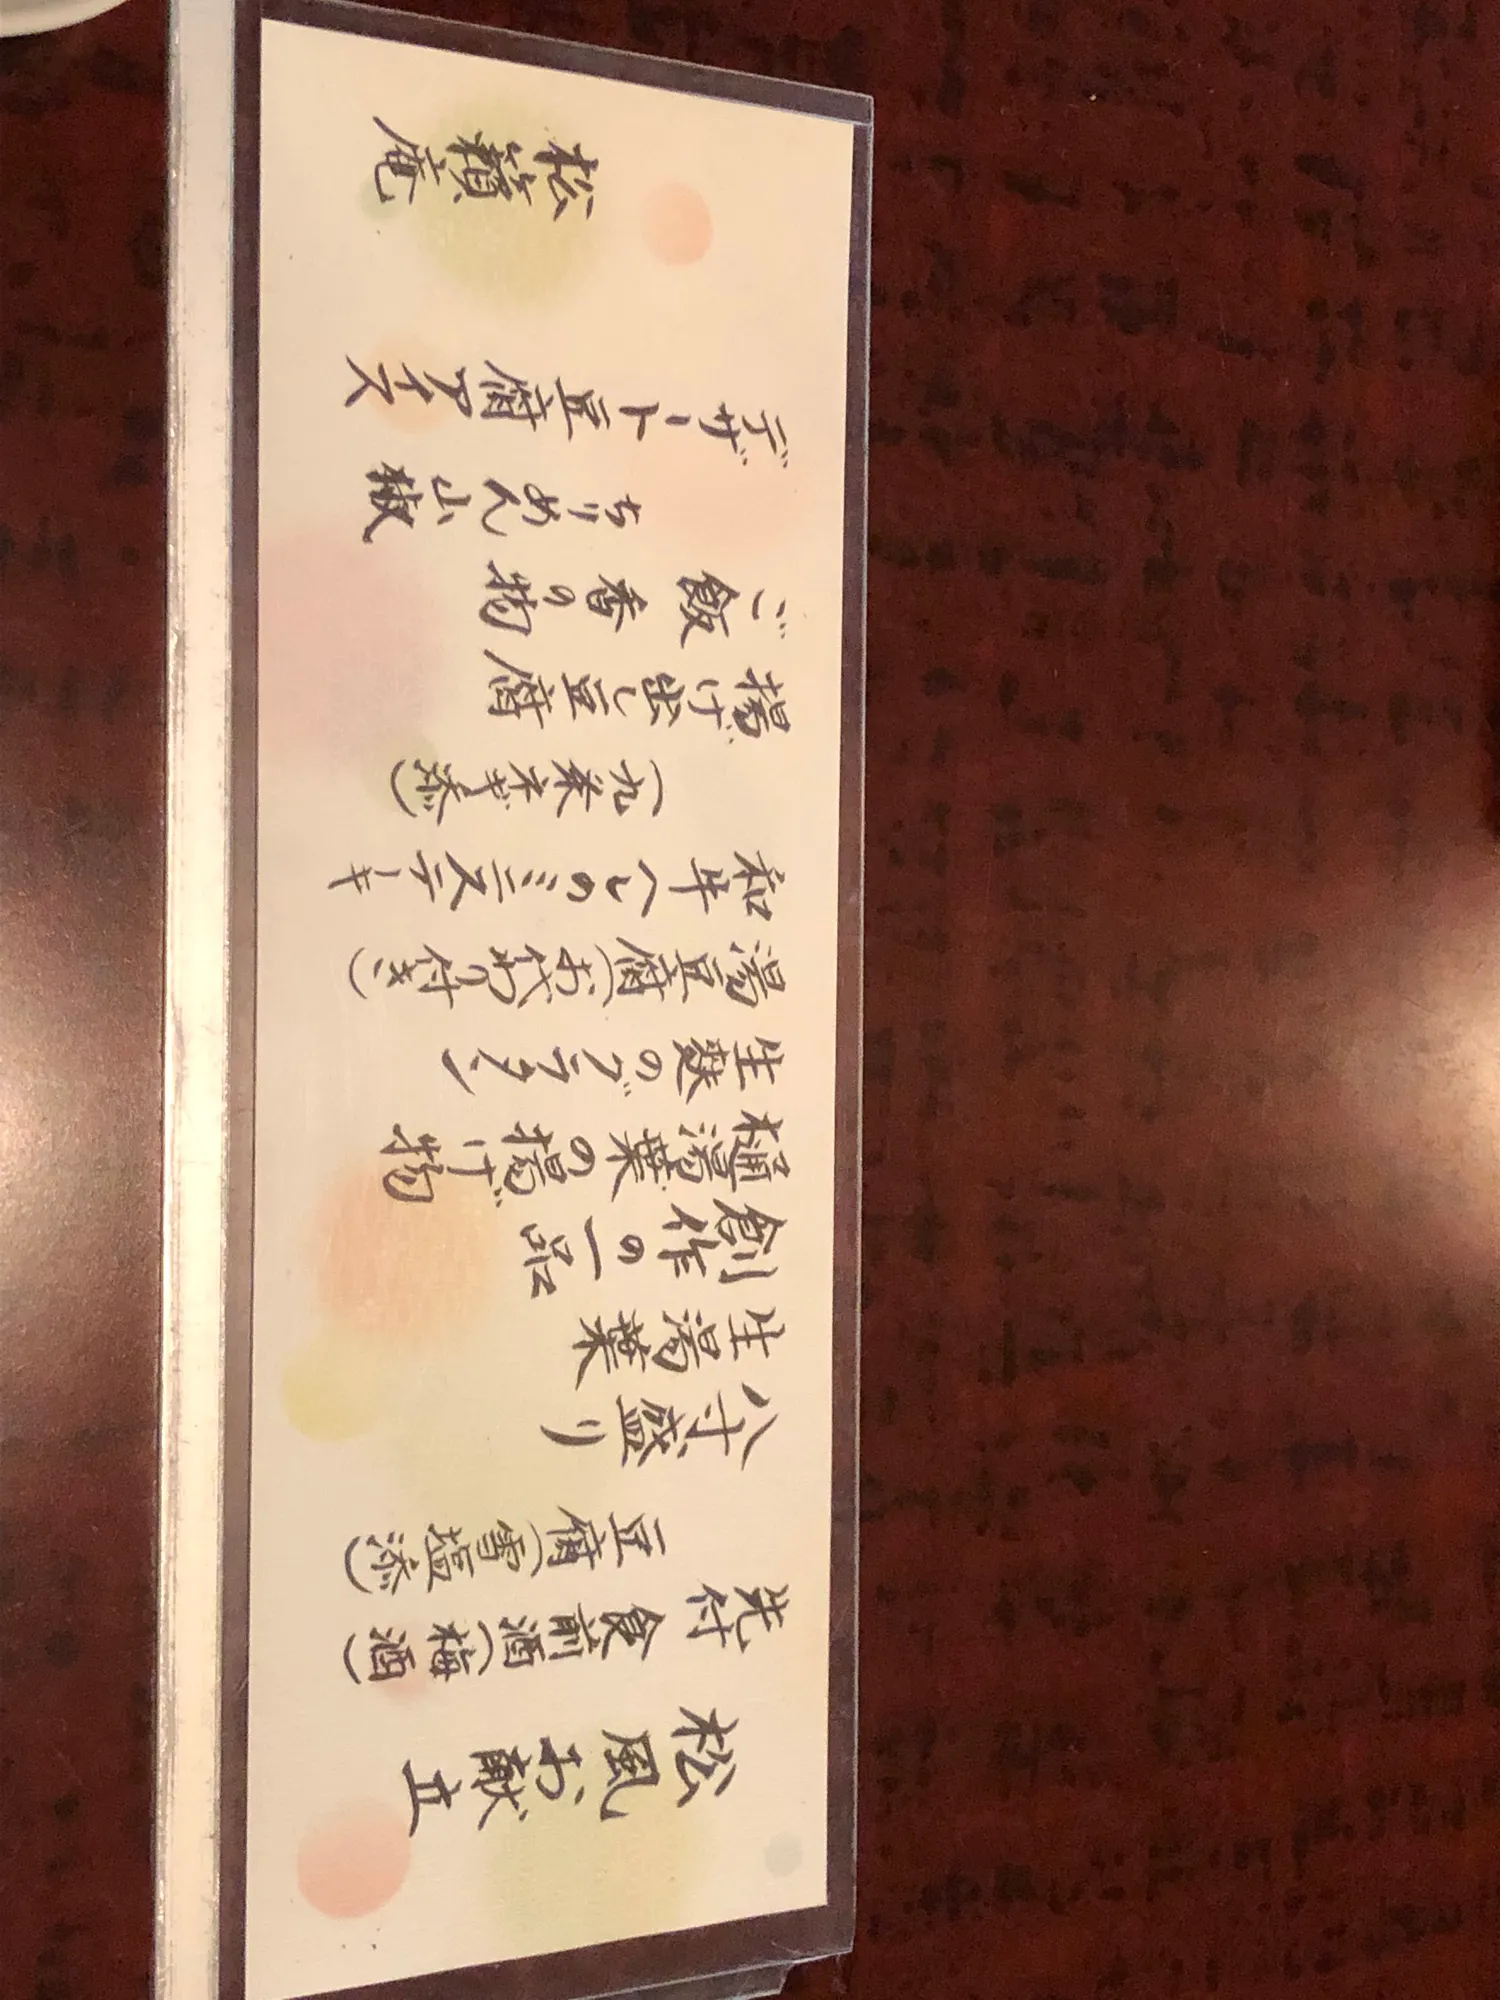 松風お献立
先付 食前酒(梅酒)
豆腐(雪塩添)
八寸盛り
生湯葉
創作の一品
樋湯葉の揚げ物
生麩のグラタン
湯豆腐(お代わり付き)
和牛へしのミニステーキ
(九条ネギ添)
揚げ出し豆腐
ご飯 香の物
ちりめん山椒
デザート豆腐アイス
松籟庵